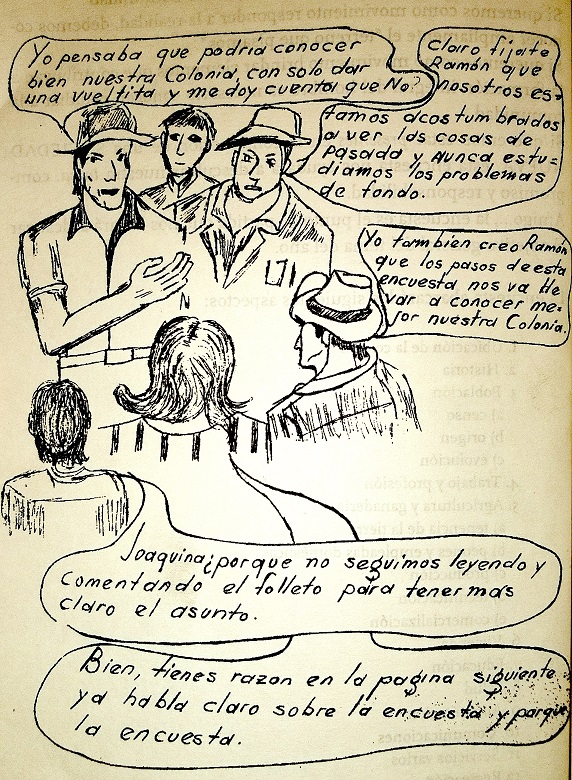 Yo pensaba que podria conocer
bien nuestra Colonia, con solo dar
una vueltita y me doy cuenta que No?
Claro fijate
Ramón que
nosotros es-
tamos acostumbrados
a ver las cosas de
pasada y nunca estu-
diamos los problemas
de fondo.
Yo tambien creo Ramon
que los pasos de esta
encuesta nos va lle
var a conocer me-
jor nuestra Colonia.
Joaquina ¿porque no seguimos leyendo y
comentando el folleto para tener mas
claro el asunto.
Bien, tienes razon en la pagina siguiente
ya habla claro sobre la encuesta y porque
la encuesta.